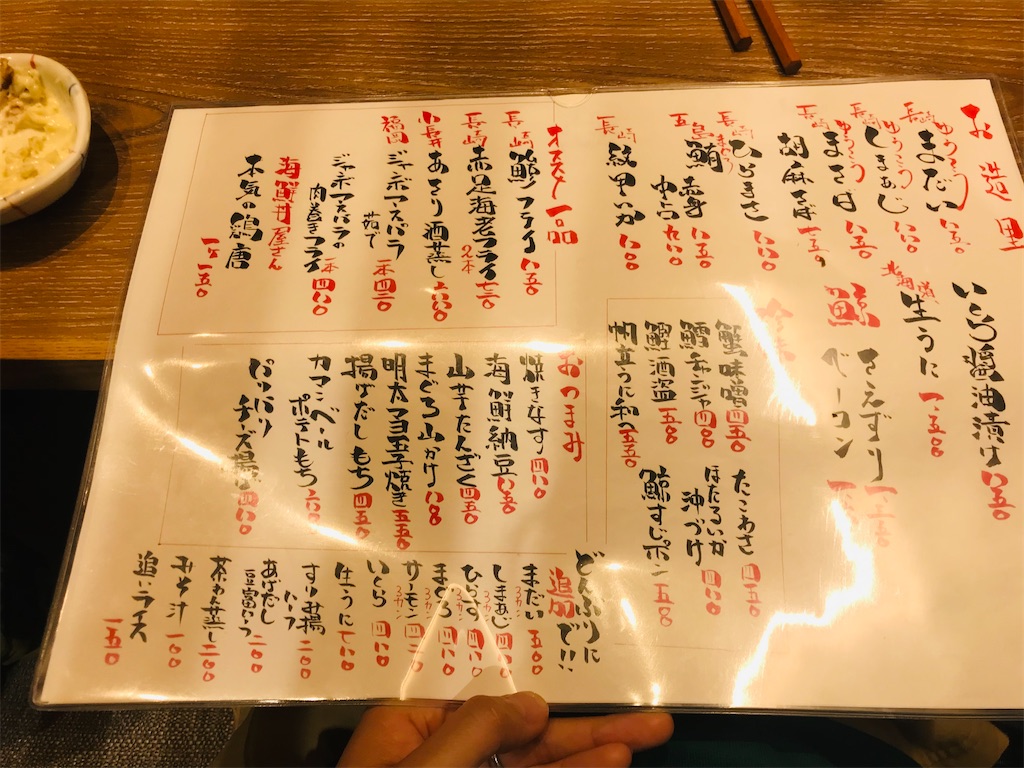 お造里
長崎 ゆうこう まだい 八五〇
長崎 ゆうこう しまあじ 八八〇
長崎 ゆうこう まさば 八五〇
胡麻さば
長崎 ひらまさ 八八〇
五島 鮪
赤身 八五〇
中とろ 九八〇
長崎 紋甲いか 八八〇
いくら醤油漬け 八五〇
北海道 生うに 一、五〇〇
鯨
さえずり
ベーコン
蟹味噌 四五〇
鱈チャンジャ 四八〇
鰹酒盗 五五〇
明太うに和え 五五〇
たこわさ 四五〇
ほたるいか沖づけ 四八〇
鯨すじポン 五五〇
オススメ一品
長崎 鯵フライ 八五〇
長崎 赤足海老フライ 2本 七三〇
小長井 あさり酒蒸し 八八〇
福岡 ジャンボアスパラ 茹で 一本 四二〇
ジャンボアスパラの
肉巻きフライ 一本 四八〇
海鮮丼屋さん
本気の鶏唐 一ヶ 一五〇
おつまみ
焼きなす 四八〇
海鮮納豆 八五〇
山芋たんざく 四五〇
まぐろ山かけ 八八〇
明太マヨ玉子焼き 五五〇
揚げだしもち 四五〇
カマンベール
ポテトもち 六八〇
パリパリ
チーズ揚げ 四八〇
どんぶりに
追加で!!
まだい 五〇〇
しまあじ 3カン 四八〇
ひらす 3カン 四八〇
まぐろ 3カン 四八〇
サーモン 3カン 四二〇
いくら 四八〇
生うに 七八〇
すり身揚
ハーフ 二〇〇
あげだし
豆富ハーフ 二〇〇
茶わん蒸し 二〇〇
みそ汁 一〇〇
追いライス 一五〇